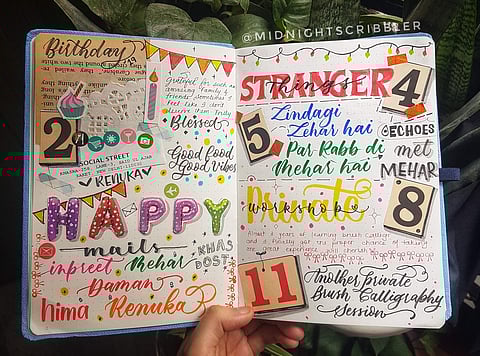 @MIDNIGHTSCRIBBLER
Birthday
Grateful for such an
amazing family &
friends! Sometimes I
feel like I don't
deserve them. Truly
Blessed
2
SOCIAL STREET
RENUKA
Good food
Good vibes
HAPPY
mails
KHAS
DOST
inpreet Mehar
Daman
hima Renuka
STRANGER
things
4
5
Zindagi
Zehar hai
Par Rabb di
Mehar hai
@ECHOES
met
MEHAR
Private
workshop
8
great experience
11
Another Private
Brush Calligraphy
Session